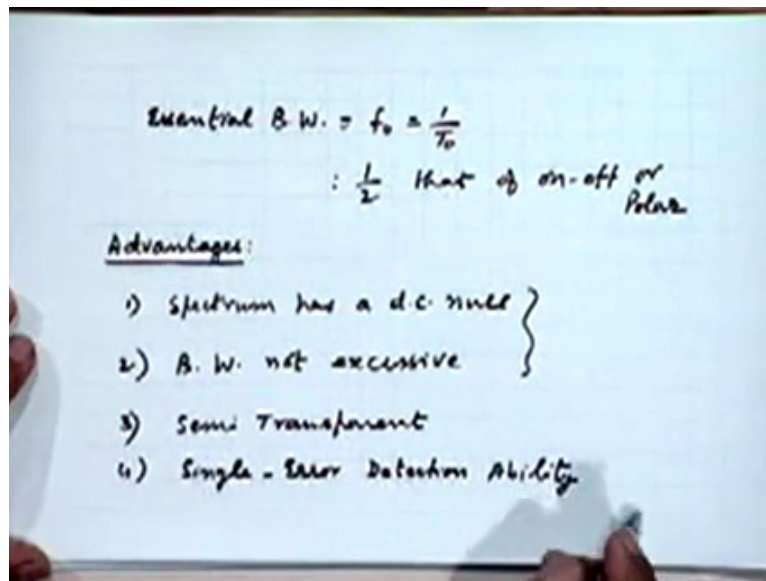 Essential B.W. = f₀ = 1/T₀
: 1/2 that of on-off or
Polar
Advantages:
1) Spectrum has a d.c. null
2) B.W. not excessive
3) Semi Transparent
4) Single-Error Detection Ability